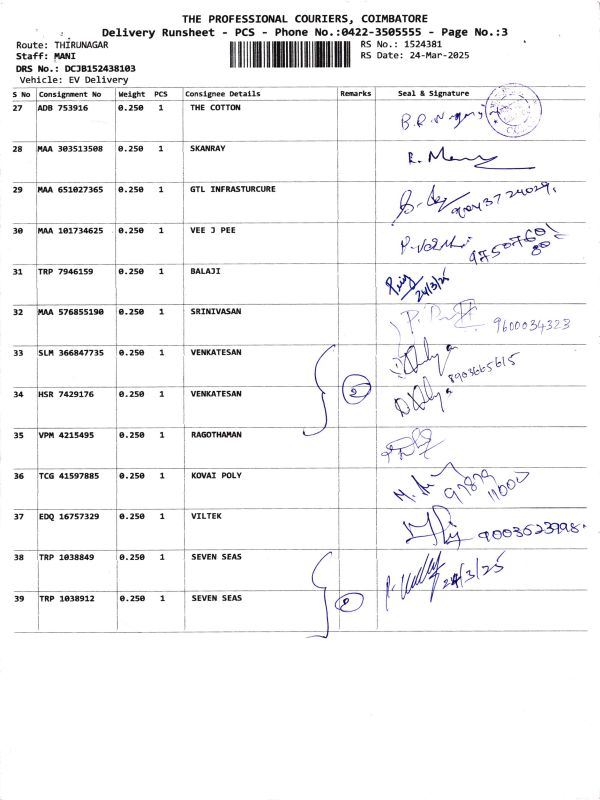 THE PROFESSIONAL COURIERS, COIMBATORE
Delivery Runsheet - PCS - Phone No.:0422-3505555 - Page No.:3
Route: THIRUNAGAR RS No.: 1524381
Staff: MANI RS Date: 24-Mar-2025
DRS No.: DCJB152438103
Vehicle: EV Delivery
S No Consignment No Weight PCS Consignee Details Remarks Seal & Signature
27 ADB 753916 0.250 1 THE COTTON
28 MAA 303513508 0.250 1 SKANRAY
29 MAA 651027365 0.250 1 GTL INFRASTURCURE 9043724029.
30 MAA 101734625 0.250 1 VEE J PEE 9750760
80
31 TRP 7946159 0.250 1 BALAJI 24/3/25
32 MAA 576855190 0.250 1 SRINIVASAN 9600034323
33 SLM 366847735 0.250 1 VENKATESAN 8903665615
34 HSR 7429176 0.250 1 VENKATESAN 2
35 VPM 4215495 0.250 1 RAGOTHAMAN
36 TCG 41597885 0.250 1 KOVAI POLY 97879
11000
37 EDQ 16757329 0.250 1 VILTEK 9003523998.
38 TRP 1038849 0.250 1 SEVEN SEAS 24/3/25
39 TRP 1038912 0.250 1 SEVEN SEAS